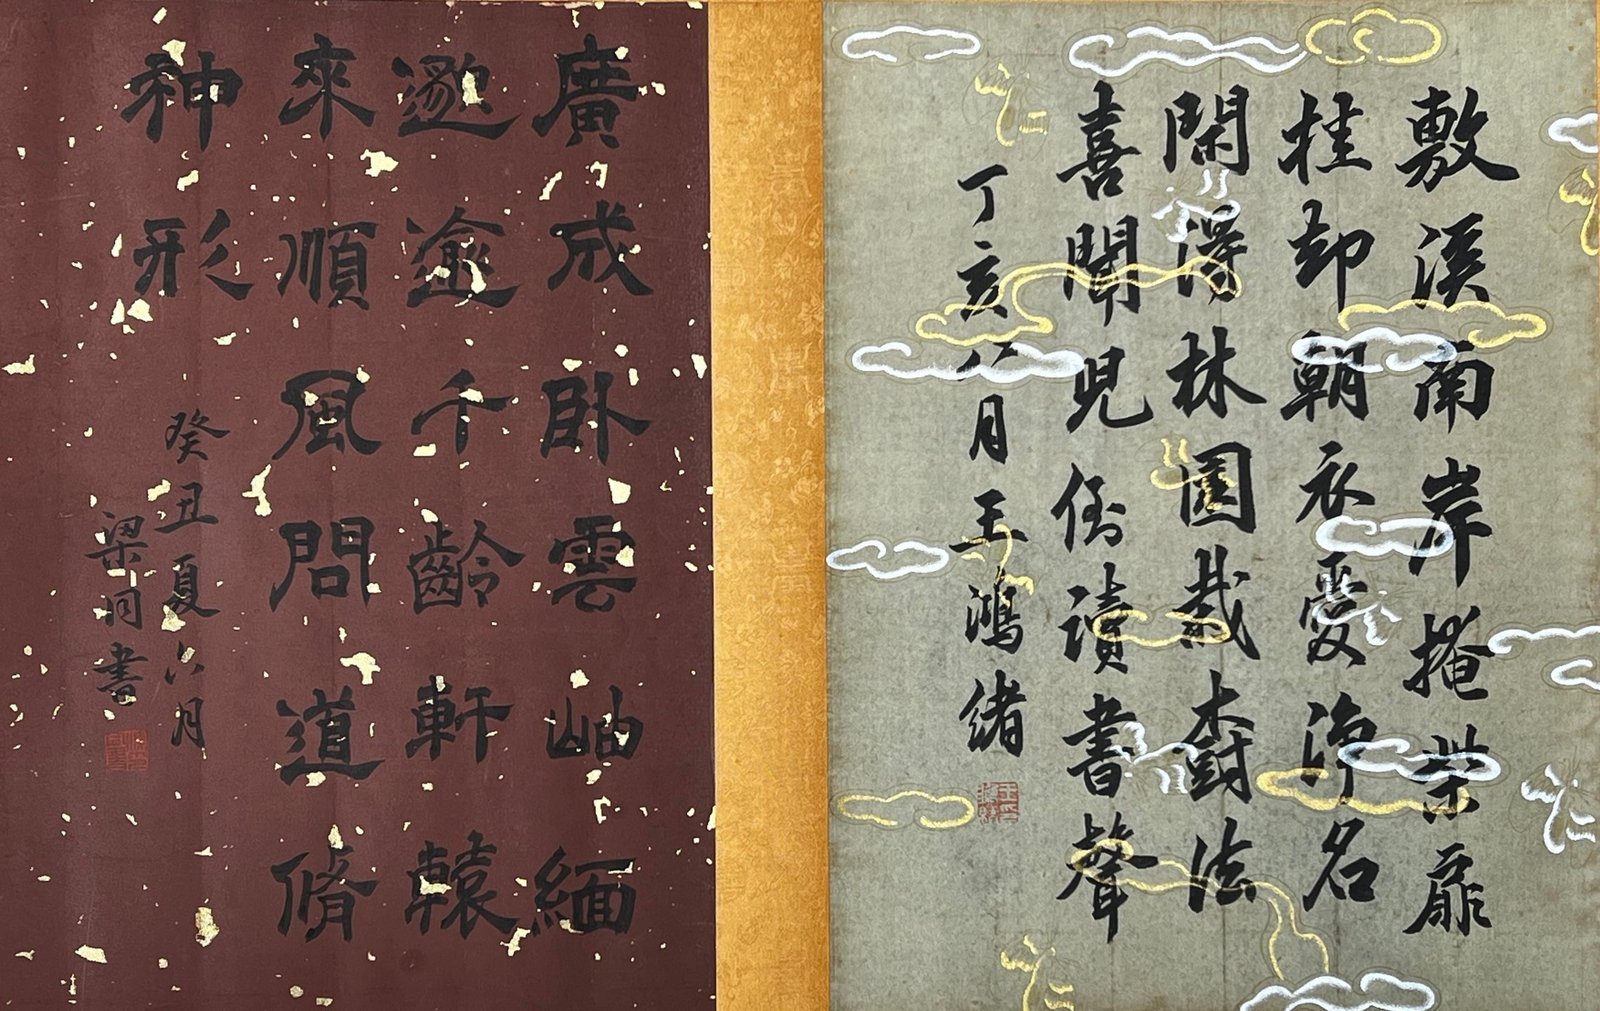 敷溪南岸掩柴扉
挂却朝衣愛淨名
閑得林園栽樹法
喜聞兒侄讀書聲
丁亥八月王鴻緒
廣成臥雲岫緬
邈逾千齡軒轅
來順風問道脩
神形
癸丑夏六月
梁同書